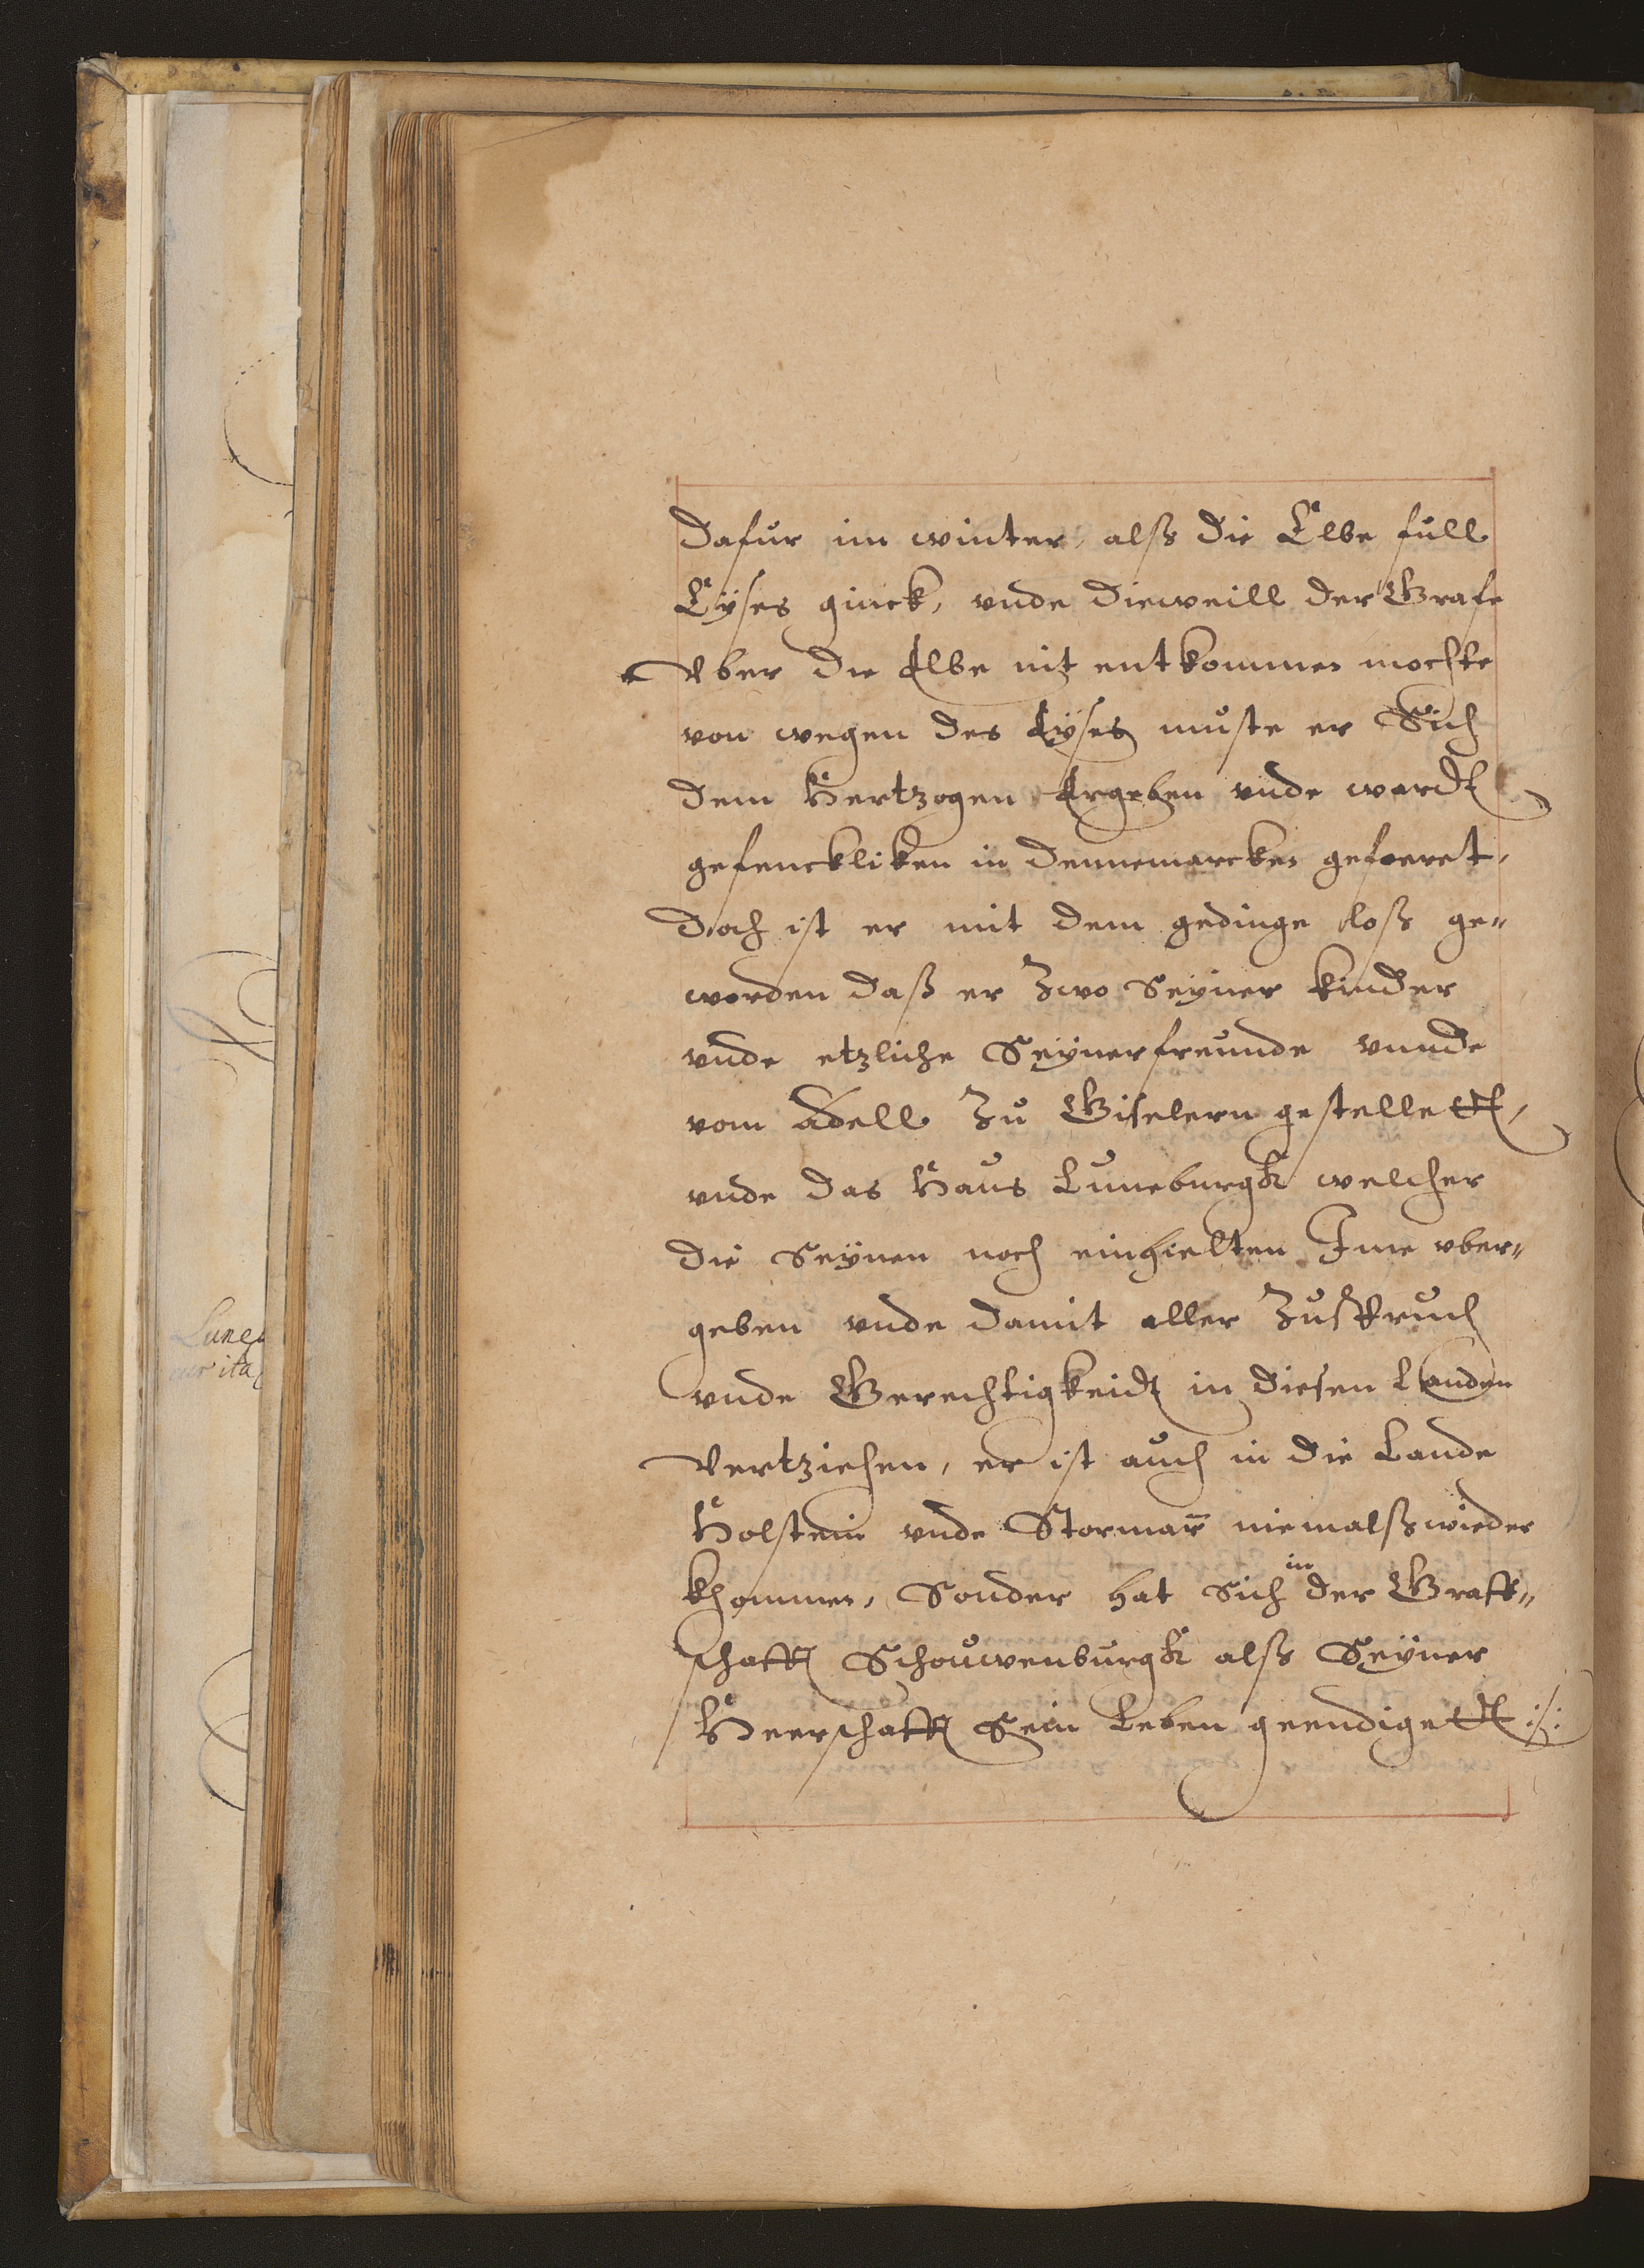 Dafur im winter, alß die Elbe full
Eÿses ginck, vnde dieweill der Grafe
Vber die Elbe nit entkommen mochte
von wegen des Eÿses muste er Sich
dem Hertzogen Ergeben vnde wardt
gefenckliken in Dennemarcken gefoeret,
Doch ist er mit dem gedinge loß ge=
worden daß er Zwo Seÿner kinder
vnde etzliche Seÿner freunde vnnde
vom Adell Zu Giselern gestellett,
vnde das Haus Luneburgk welcher
die Seÿnen noch einhielten Ime vber=
geben vnde damit aller Zuspruch
vnde Gerechtigkeidt in diesen Landen
Vertziehen, er ist auch in die Lande
Holstein vnde Stormarn̄ niemalß wieder
khommen, Sonder hat Sich in der Graff=
schafft Schouwenburgk alß Seÿner
Heerschafft Sein Leben geendigett :/:
Luneb
cur ita